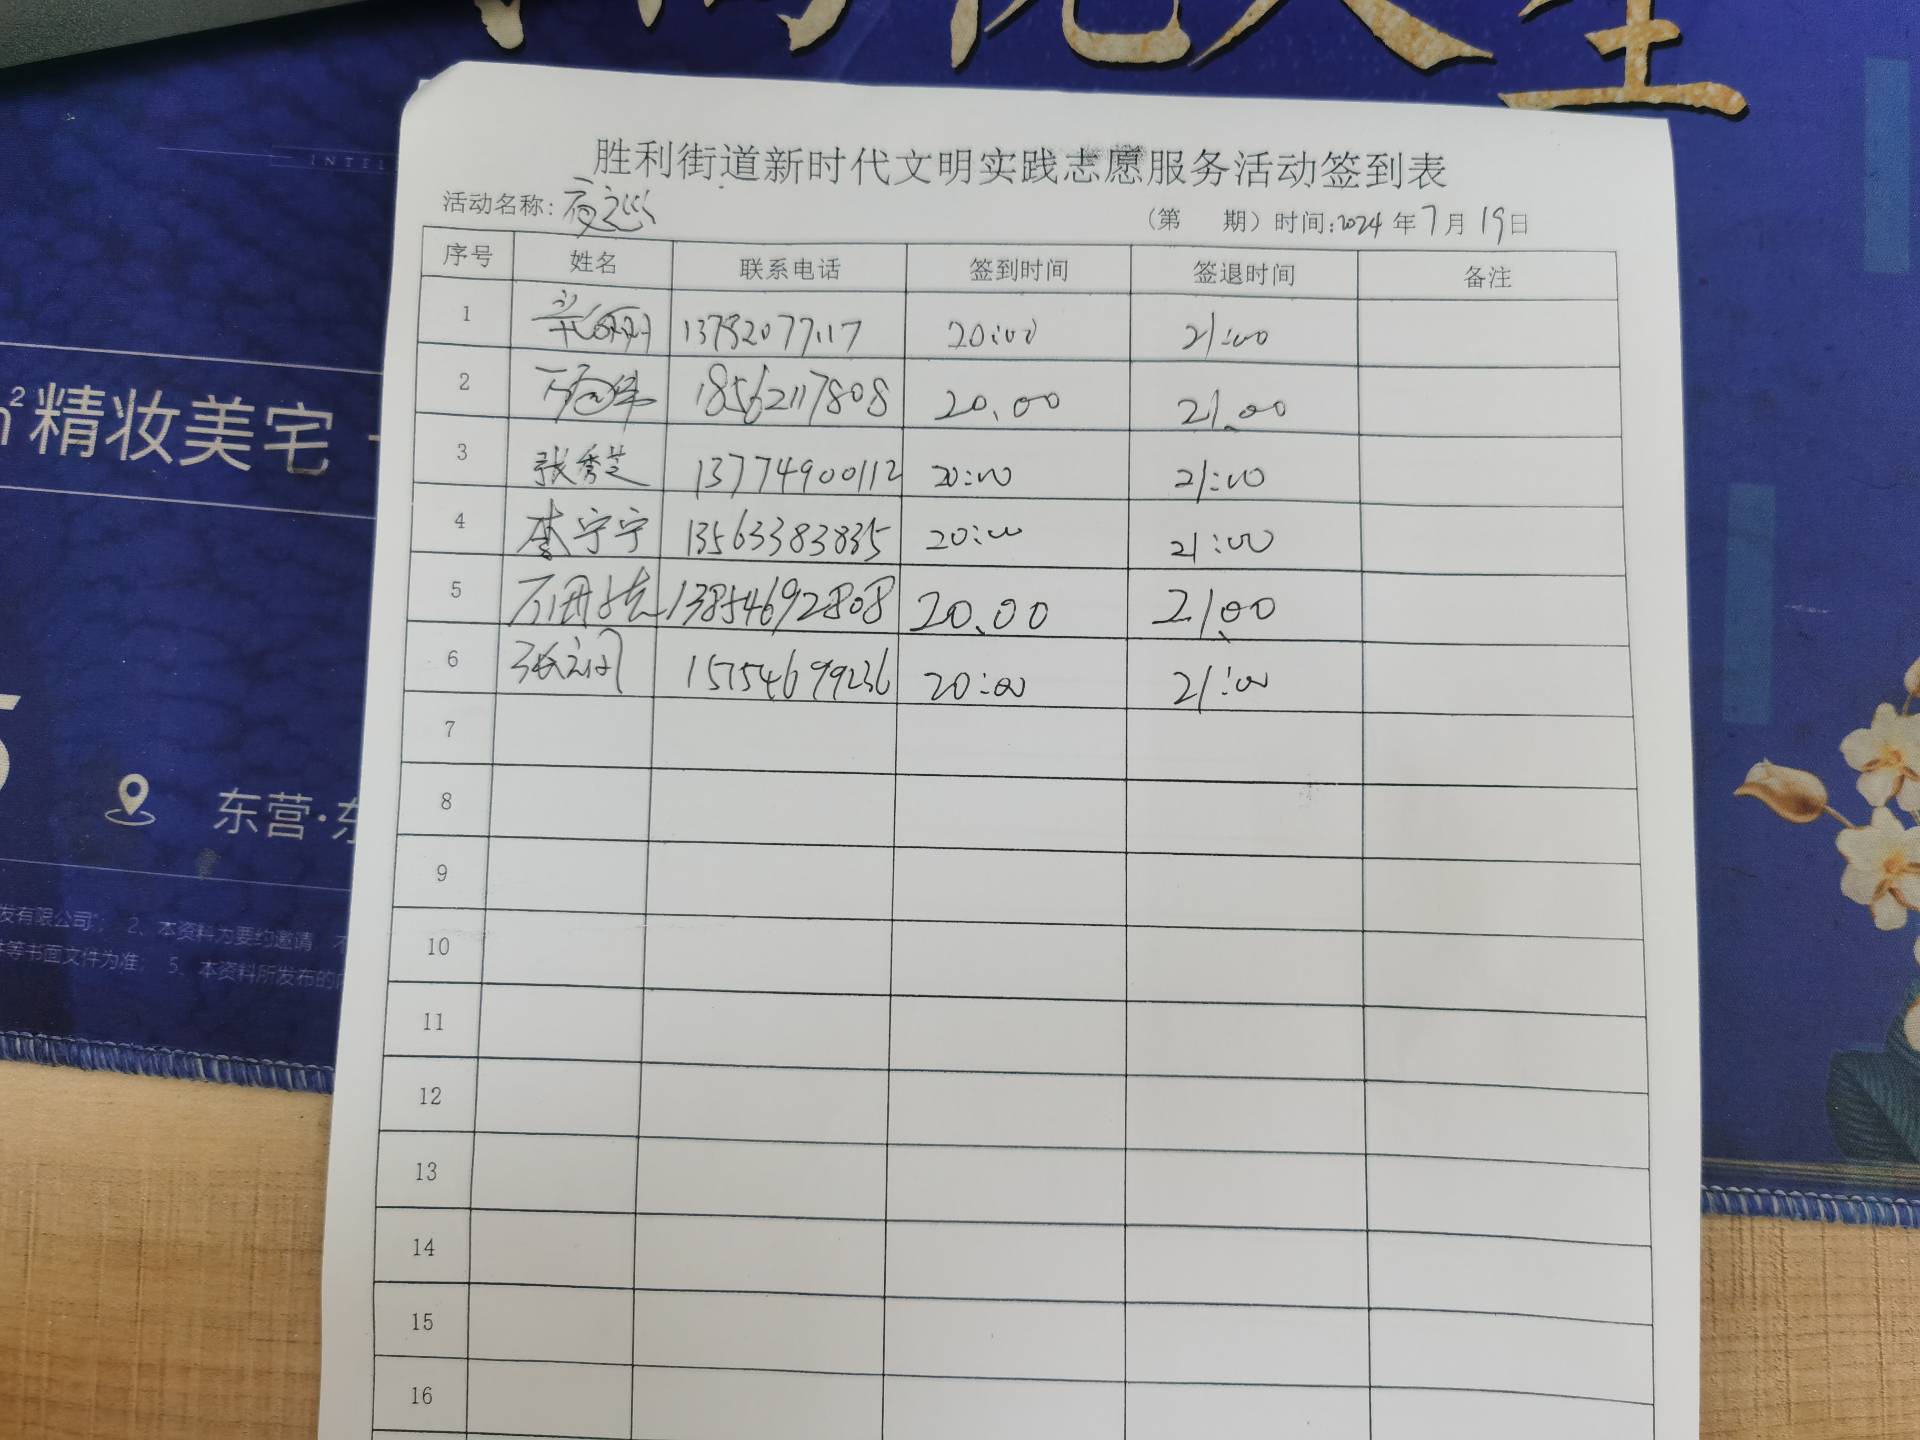 INTEL
精妆美宅
东营·东
发有限公司; 2、本资料为要约邀请
件等书面文件为准; 5、本资料所发布的内
胜利街道新时代文明实践志愿服务活动签到表
活动名称:
(第 期) 时间:2024年7月19日
序号 姓名 联系电话 签到时间 签退时间 备注
1 20:00 21:00
2 18562117808 20.00 21.00
3 张秀芝 13774900112 20:00 21:00
4 李宁宁 13563383835 20:00 21:00
5 13854692808 20.00 21.00
6 15754699236 20:00 21:00
7
8
9
10
11
12
13
14
15
16